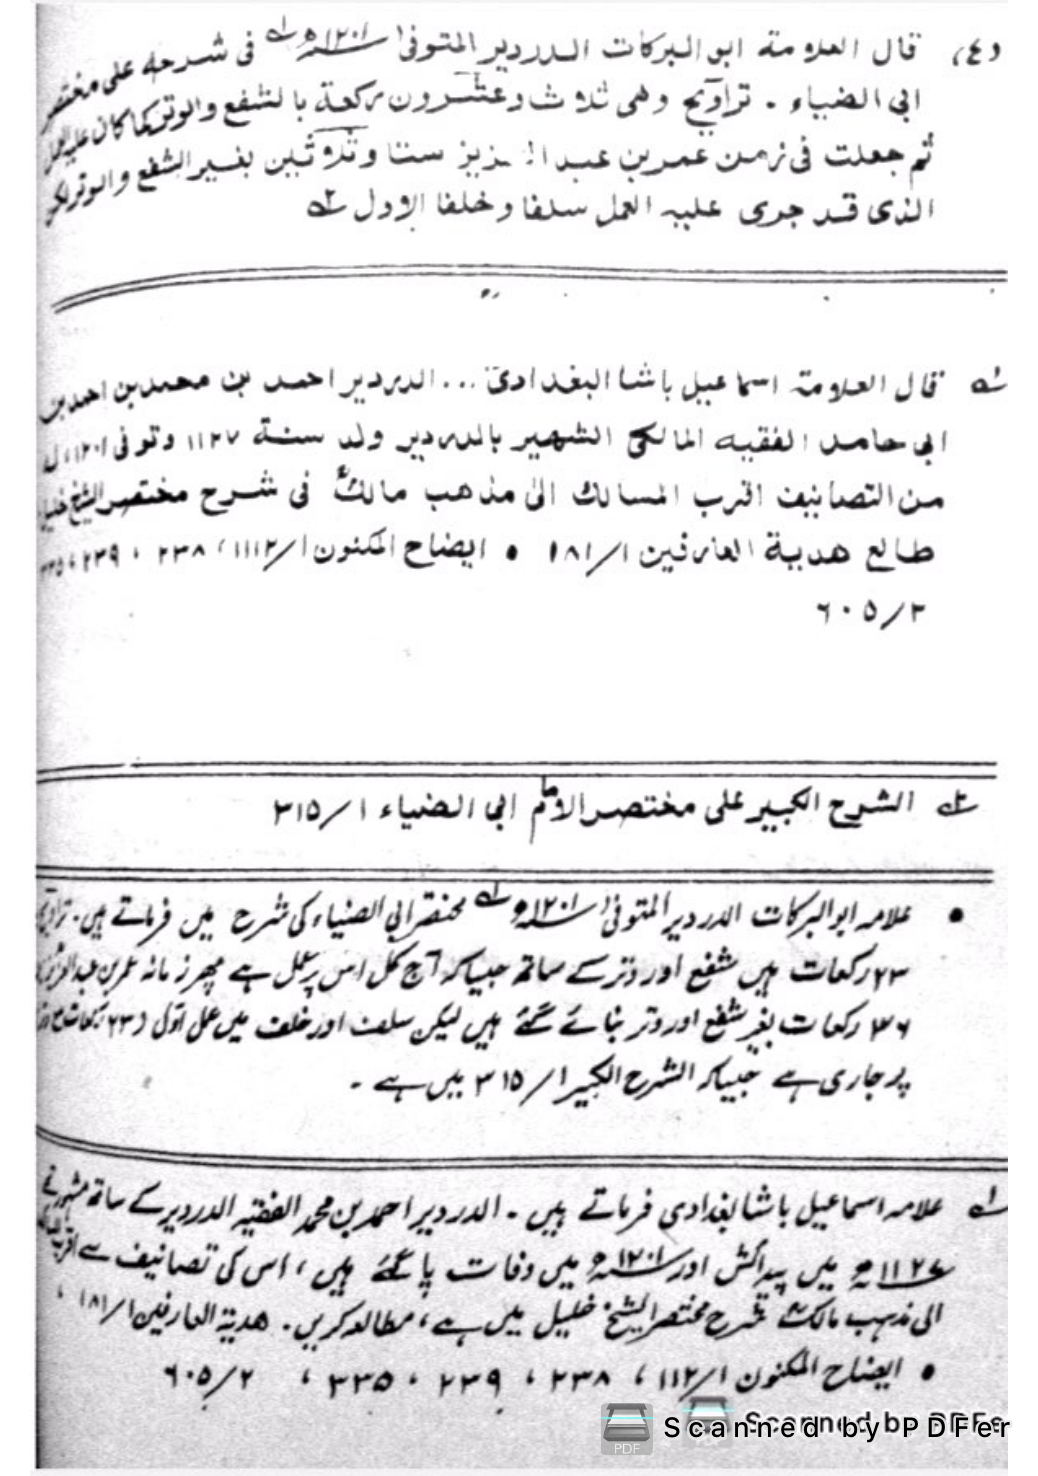 (٤) قال العلامة ابو البركات الدردير المتوفى ١٢٠١ھ لہ فى شرحه على مختصر
ابى الضياء . تراويح وهى ثلاث وعشرون ركعة بالشفع والوتر كما كان عليه العمل
ثم جعلت فى زمن عمر بن عبد العزيز ستا وثلاثين بغير الشفع والوتر لكن
الذى قد جرى عليه العمل سلفا وخلفا الاول ٢ہ
لہ قال العلامة اسماعيل باشا البغدادى ... الدردير احمد بن محمد بن احمد بن
ابى حامد الفقيه المالكى الشهير بالدردير ولد سنة ١١٢٧ وتوفى ١٢٠١
من التصانيف اقرب المسالك الى مذهب مالكؒ فى شرح مختصر الشيخ خليل
طالع هدية العارفين ١/١٨١ • ايضاح المكنون ١/١١٢، ٢٣٨، ٢٣٩، ٣٣٥
٢/٦٠٥
٢ہ الشرح الكبير على مختصر الامام ابى الضياء ١/٣١٥
• علامہ ابو البرکات الدردیر المتوفیٰ ۱۲۰۱ھ لہ مختصر ابی الضیاء کی شرح میں فرماتے ہیں۔ تراویح
۲۳ رکعات ہیں شفع اور وتر کے ساتھ جیسا کہ آج کل اس پر عمل ہے پھر زمانہ عمر بن عبد العزیز
۳۶ رکعات بغیر شفع اور وتر بنائے گئے ہیں لیکن سلف اور خلف میں عمل اول (۲۳ رکعات
پر جاری ہے جیسا کہ الشرح الکبیر ۱/۳۱۵ میں ہے ۔
لہ علامہ اسماعیل باشا بغدادی فرماتے ہیں ۔ الدردیر احمد بن محمد الفقیہ الدردیر کے ساتھ مشہور تھے
۱۱۲۷ھ میں پیدائش اور ۱۲۰۱ھ میں وفات پا گئے ہیں، اس کی تصانیف سے اقرب
الی مذہب مالکؒ شرح مختصر الشیخ خلیل میں ہے، مطالعہ کریں۔ ھدیۃ العارفین ۱/۱۸۱،
• ایضاح المکنون ۱/۱۱۲، ۲۳۸، ۲۳۹، ۳۳۵، ۲/۶۰۵
Scanned by PDFer